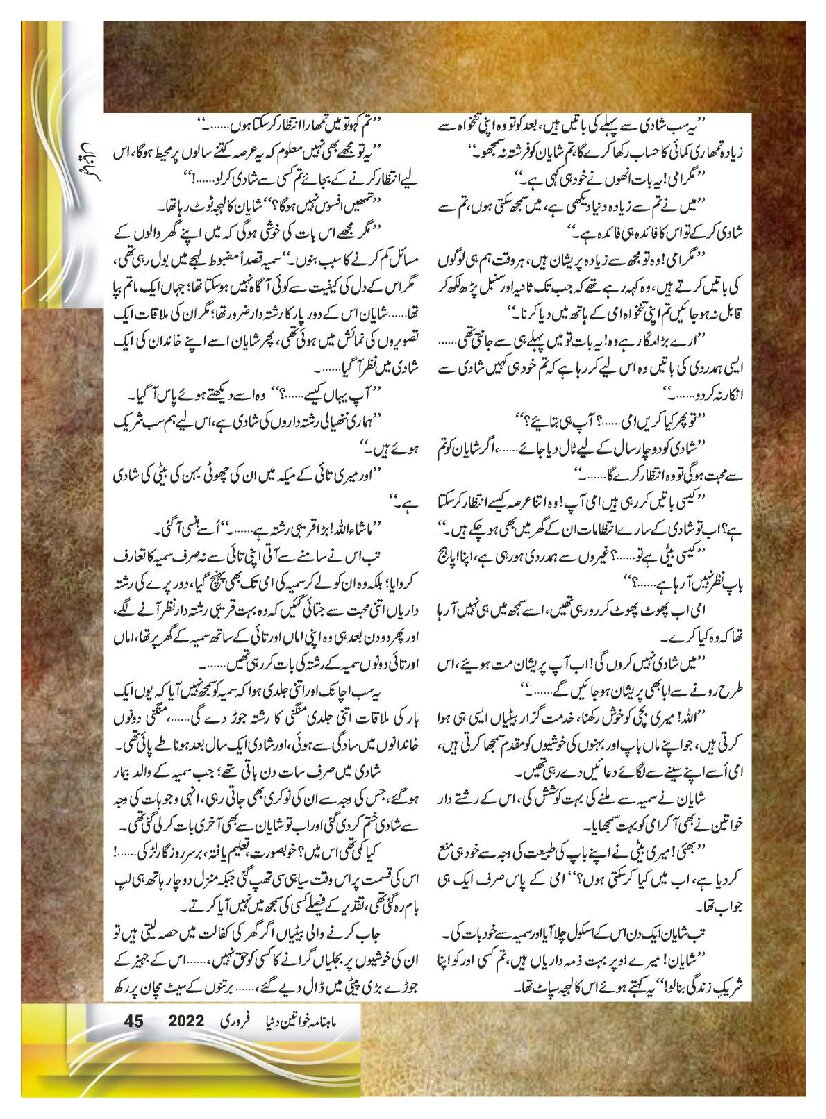 کہانیاں
’’یہ سب شادی سے پہلے کی باتیں ہیں، بعد کو تو وہ اپنی تنخواہ سے
زیادہ تمھاری کمائی کا حساب رکھا کرے گا، تم شایان کو فرشتہ نہ سمجھو۔‘‘
’’مگر امی! یہ بات انھوں نے خود ہی کہی ہے۔‘‘
’’میں نے تم سے زیادہ دنیا دیکھی ہے، میں سمجھ سکتی ہوں، تم سے
شادی کر کے تو اس کا فائدہ ہی فائدہ ہے۔‘‘
’’مگر امی! وہ تو مجھ سے زیادہ پریشان ہیں، ہر وقت ہم ہی لوگوں
کی باتیں کرتے ہیں، وہ کہہ رہے تھے کہ جب تک ثانیہ اور سنبل پڑھ لکھ کر
قابل نہ ہو جائیں تم اپنی تنخواہ امی کے ہاتھ میں دیا کرنا۔‘‘
’’ارے بڑا مکار ہے وہ! یہ بات تو میں پہلے ہی سے جانتی تھی......
ایسی ہمدردی کی باتیں وہ اس لیے کر رہا ہے کہ تم خود ہی کہیں شادی سے
انکار نہ کر دو......۔‘‘
’’تو پھر کیا کریں امی.....؟ آپ ہی بتائیے؟‘‘
’’شادی کو دو چار سال کے لیے ٹال دیا جائے......، اگر شایان کو تم
سے محبت ہو گی تو وہ انتظار کرے گا......۔‘‘
’’کیسی باتیں کر رہی ہیں امی آپ! وہ اتنا عرصہ کیسے انتظار کر سکتا
ہے؟ اب تو شادی کے سارے انتظامات ان کے گھر میں بھی ہو چکے ہیں۔‘‘
’’کیسی بیٹی ہے تو......؟ غیروں سے ہمدردی ہو رہی ہے، اپنا اپاہج
باپ نظر نہیں آ رہا ہے......؟‘‘
امی اب پھوٹ پھوٹ کر رو رہی تھیں، اسے سمجھ میں ہی نہیں آ رہا
تھا کہ وہ کیا کرے۔
’’میں شادی نہیں کروں گی! اب آپ پریشان مت ہوئیے، اس
طرح رونے سے ابا بھی پریشان ہو جائیں گے......۔‘‘
’’اللہ! میری بچی کو خوش رکھنا، خدمت گزار بیٹیاں ایسی ہی ہوا
کرتی ہیں، جو اپنے ماں باپ اور بہنوں کی خوشیوں کو مقدم سمجھا کرتی ہیں،
امی اُسے اپنے سینے سے لگائے دعائیں دے رہی تھیں۔
شایان نے سمیہ سے ملنے کی بہت کوشش کی، اس کے رشتے دار
خواتین نے بھی آ کر امی کو بہت سمجھایا۔
’’بھئی! میری بیٹی نے اپنے باپ کی طبیعت کی وجہ سے خود ہی منع
کر دیا ہے، اب میں کیا کر سکتی ہوں؟‘‘ امی کے پاس صرف ایک ہی
جواب تھا۔
تب شایان ایک دن اس کے اسکول چلا آیا اور سمیہ سے خود بات کی۔
’’شایان! میرے اوپر بہت ذمہ داریاں ہیں، تم کسی اور کو اپنا
شریکِ زندگی بنا لو!‘‘ یہ کہتے ہوئے اس کا لہجہ سپاٹ تھا۔
’’تم کہو تو میں تمھارا انتظار کر سکتا ہوں......۔‘‘
’’یہ تو مجھے بھی نہیں معلوم کہ یہ عرصہ کتنے سالوں پر محیط ہوگا، اس
لیے انتظار کرنے کے بجائے تم کسی سے شادی کر لو......!‘‘
’’تمھیں افسوس نہیں ہوگا؟‘‘ شایان کا لہجہ ٹوٹ رہا تھا۔
’’مگر مجھے اس بات کی خوشی ہوگی کہ میں اپنے گھر والوں کے
مسائل کم کرنے کا سبب بنوں۔‘‘ سمیہ قصداً مضبوط لہجے میں بول رہی تھی،
مگر اس کے دل کی کیفیت سے کوئی آگاہ نہیں ہو سکتا تھا؛ جہاں ایک ماتم بپا
تھا...... شایان اس کے دور پار کا رشتہ دار ضرور تھا؛ مگر ان کی ملاقات ایک
تصویروں کی نمائش میں ہوئی تھی، پھر شایان اسے اپنے خاندان کی ایک
شادی میں نظر آ گیا......۔
’’آپ یہاں کیسے......؟‘‘ وہ اسے دیکھتے ہوئے پاس آ گیا۔
’’ہماری ننھیالی رشتہ داروں کی شادی ہے، اس لیے ہم سب شریک
ہوئے ہیں۔‘‘
’’اور میری تائی کے میکہ میں ان کی چھوٹی بہن کی بیٹی کی شادی
ہے۔‘‘
’’ماشاء اللہ! بڑا قریبی رشتہ ہے......۔‘‘ اُسے ہنسی آ گئی۔
تب اس نے سامنے سے آتی اپنی تائی سے نہ صرف سمیہ کا تعارف
کروایا؛ بلکہ وہ ان کو لے کر سمیہ کی امی تک بھی پہنچ گیا، دور پرے کی رشتہ
داریاں اتنی محبت سے جتائی گئیں کہ وہ بہت قریبی رشتہ دار نظر آنے لگے،
اور پھر دو دن بعد ہی وہ اپنی اماں اور تائی کے ساتھ سمیہ کے گھر پر تھا، اماں
اور تائی دونوں سمیہ کے رشتہ کی بات کر رہی تھیں......۔
یہ سب اچانک اور اتنی جلدی ہوا کہ سمیہ کو سمجھ نہیں آیا کہ یوں ایک
بار کی ملاقات اتنی جلدی منگنی کا رشتہ جوڑ دے گی......، منگنی دونوں
خاندانوں میں سادگی سے ہوئی، اور شادی ایک سال بعد ہونا طے پائی تھی۔
شادی میں صرف سات دن باقی تھے؛ جب سمیہ کے والد بیمار
ہو گئے، جس کی وجہ سے ان کی نوکری بھی جاتی رہی، انہی وجوہات کی وجہ
سے شادی ختم کر دی گئی اور اب تو شایان سے بھی آخری بات کر لی گئی تھی۔
کیا کمی تھی اس میں؟ خوبصورت، تعلیم یافتہ، برسر روزگار لڑکی......!
اس کی قسمت پر اس وقت سیاہی سی تھپ گئی جبکہ منزل دو چار ہاتھ ہی لب
بام رہ گئی تھی، تقدیر کے فیصلے کسی کی سمجھ میں نہیں آیا کرتے۔
جاب کرنے والی بیٹیاں اگر گھر کی کفالت میں حصہ لیتی ہیں تو
ان کی خوشیوں پر بجلیاں گرانے کا کسی کو حق نہیں،...... اس کے جہیز کے
جوڑے بڑی پیٹی میں ڈال دیے گئے،...... برتنوں کے سیٹ مچان پر رکھ
ماہنامہ خواتین دنیا فروری 2022 45